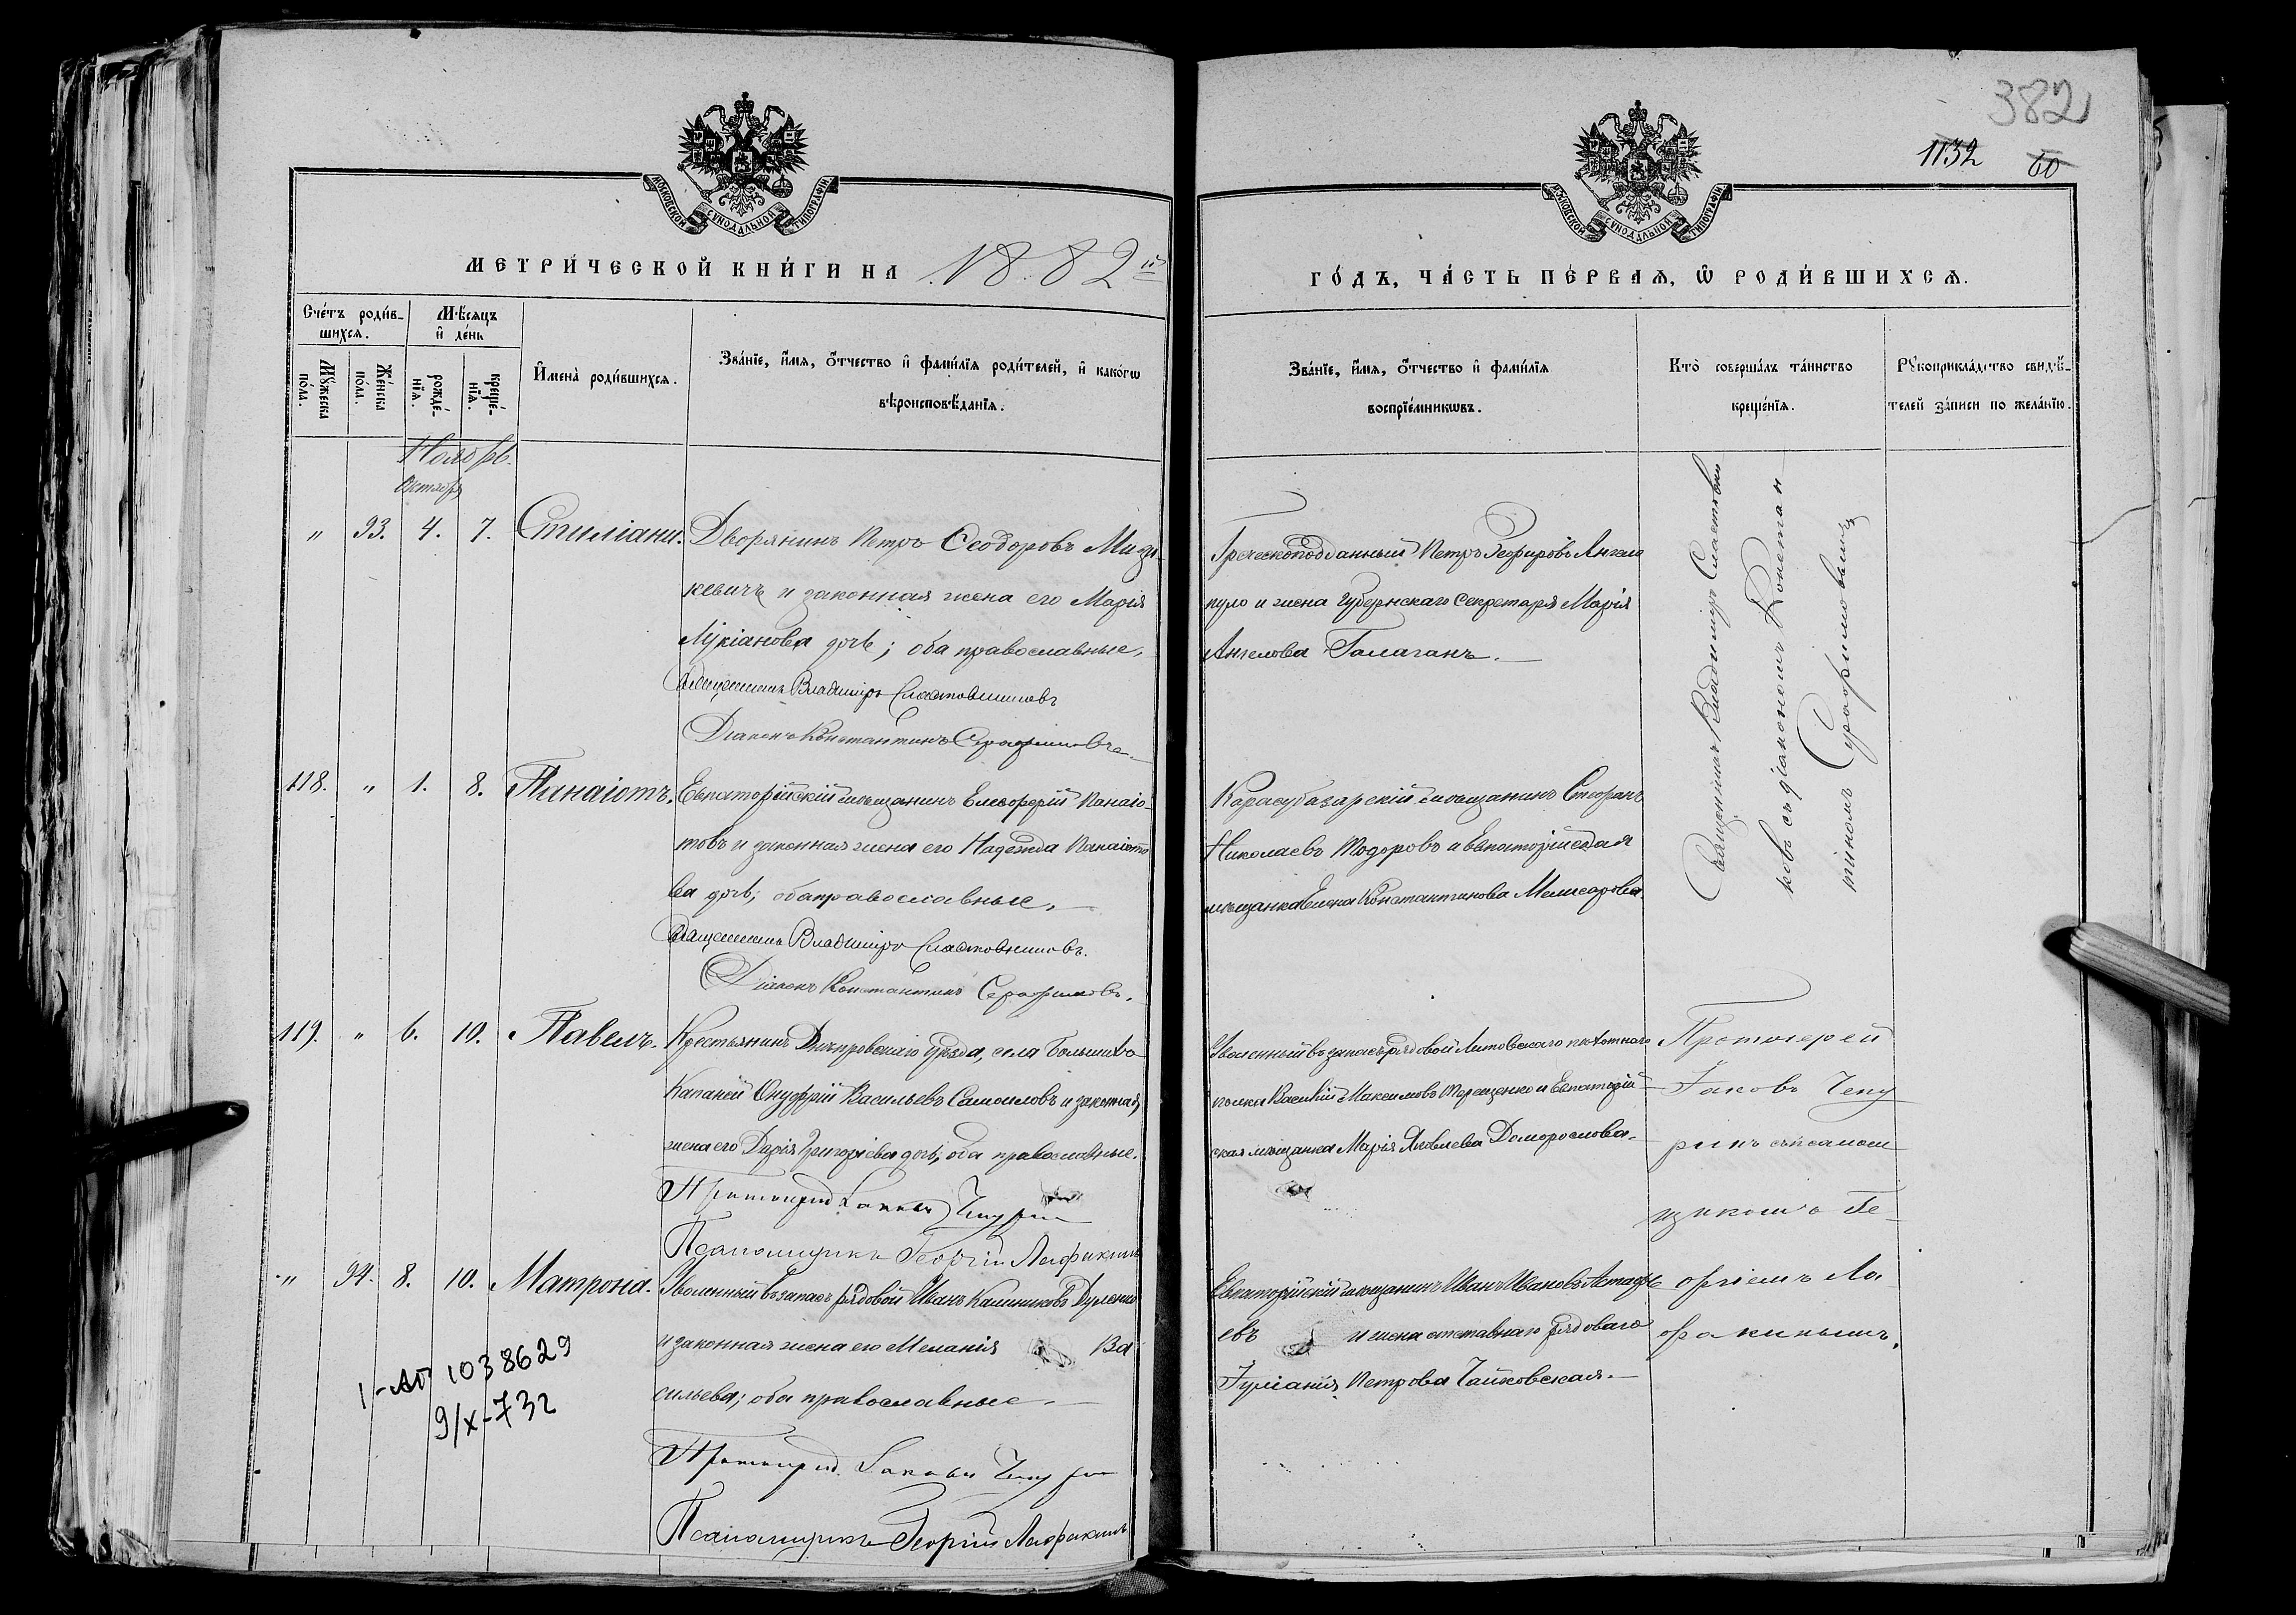 382
1132 60
МОСКОВСКОЙ СѴНОДАЛЬНОЙ ТИПОГРАФІИ
МОСКОВСКОЙ СѴНОДАЛЬНОЙ ТИПОГРАФІИ
МЕТРИ́ЧЕСКОЙ КНИ́ГИ НА 1882й
ГО́ДЪ, ЧА́СТЬ ПЕ́РВАЯ, Ѡ РОДИ́ВШИХСЯ.
Сче́тъ роди́в-
шихся.
Мꙋ́жеска по́ла.
Же́нска по́ла.
Мѣ́сяцъ
и де́нь
рожде́-
нїя.
креще́-
нїя.
И҆мена̀ роди́вшихся.
Зва́нїе, и҆́мя, о҆́тчество и҆ фами́лїя роди́телей, и҆ како́гѡ
вѣроисповѣ́данїя.
Зва́нїе, и҆́мя, о҆́тчество и҆ фами́лїя
воспрїе́мникѡвъ.
Кто̀ соверша́лъ та́инство
креще́нїя.
Рꙋкоприкла́дство свидѣ́-
телей за́писи по жела́нїю.
Ноябрь.
Октября
" 93. 4. 7. Стиліани. Дворянинъ Петръ Ѳеодоровъ
кевичъ и законная жена его Марія
Лукіанова дочь; оба православные.
Священникъ Владиміръ Сластовниковъ
Діаконъ Константинъ Серафимовъ
Греческоподданный Петръ Зефировъ Ангело
пуло и жена Губернскаго Секретаря Марія
Ангелова Галаганъ.
Священникъ Владиміръ Сластовни
ковъ съ діакономъ Констан
тиномъ Серафимовымъ
118. " 1. 8. Панаіотъ. Евпаторійскій мѣщанинъ Елевферій Панаіо-
товъ и законная жена его Надежда Панаіото
ва дочь; оба православные.
Священникъ Владиміръ Сластовниковъ.
Діаконъ Константинъ Серафимовъ.
Карасубазарскій мѣщанинъ Стефанъ
Николаевъ Тодоровъ и Евпаторійская
мѣщанка Елена Константинова
119. " 6. 10. Павелъ. Крестьянинъ Днѣпровскаго уѣзда, села Большихъ
Капаней Онуфрій Васильевъ Самойловъ и законная
жена его Дарія Григоріева дочь, оба православные.
Протоіерей Іаковъ Чепуринъ
Псаломщикъ Георгій Лафакинъ
Уволенный въ запасъ рядовой Литовскаго пѣхотнаго
полка Василій Максимовъ Терещенко и Евпаторій-
ская мѣщанка Марія Яковлева Доморослова.
Протоіерей
Іаковъ Чепу
ринъ съ псалом
щикомъ Ге-
оргіемъ Ла-
факинымъ.
" 94. 8. 10. Матрона. Уволенный въ запасъ рядовой Иванъ Калинниковъ
и законная жена его Меланія Ва
сильева; оба православные.
Протоіерей Іаковъ Чепуринъ
Псаломщикъ Георгій Лафакинъ
Евпаторійскій мѣщанинъ Иванъ Ивановъ Астафь
евъ и жена отставнаго рядоваго
Іуліанія Петрова Чайковская.
1-АП 1038629
9/х-732